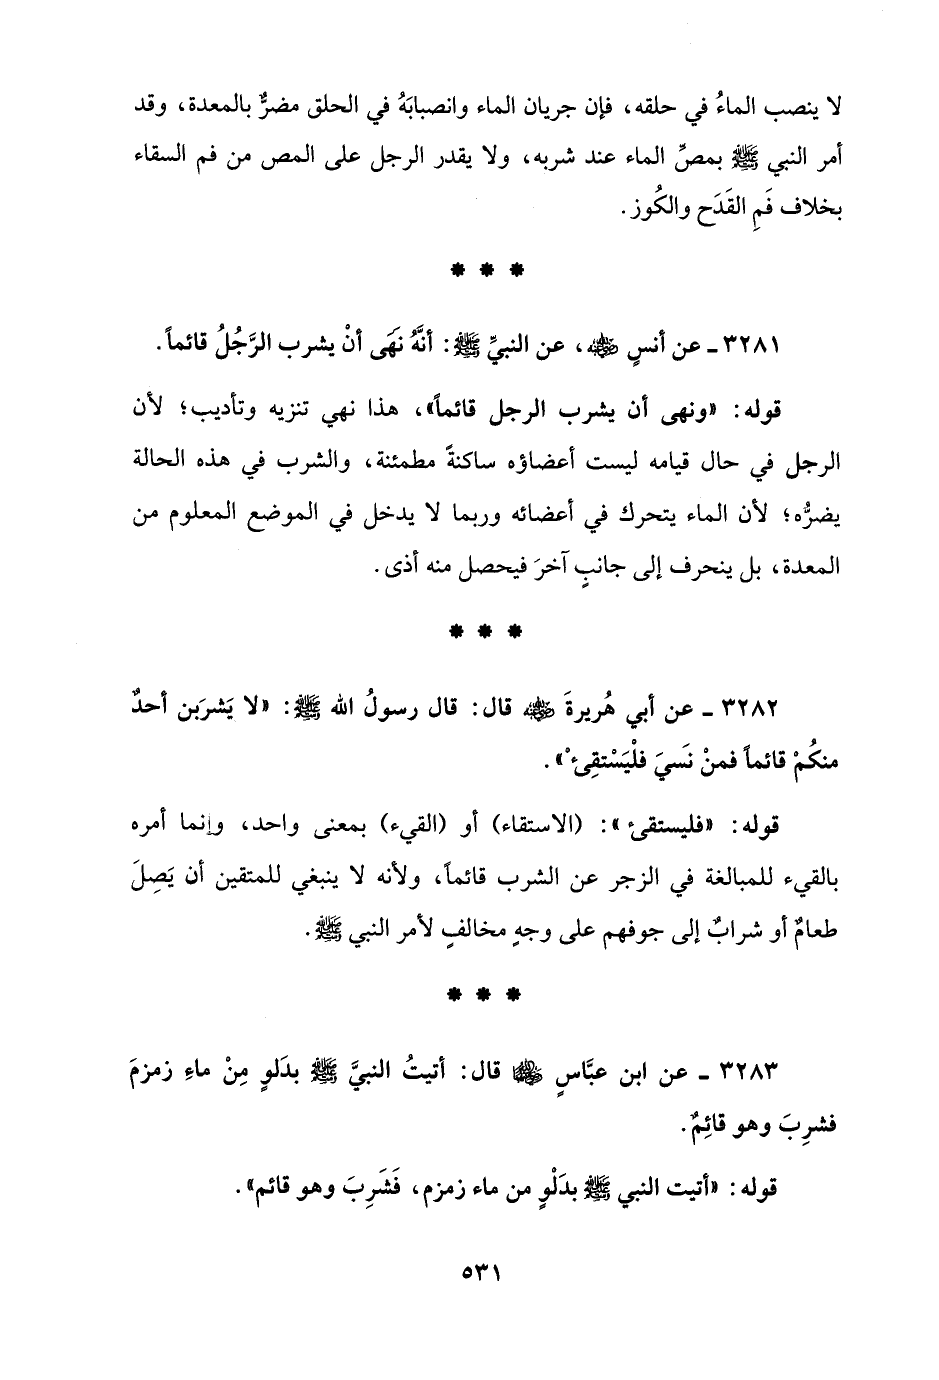 لا ينصب الماءُ في حلقه، فإن جريان الماء وانصبابَهُ في الحلق مضرٌّ بالمعدة، وقد
أمر النبي ﷺ بمصِّ الماء عند شربه، ولا يقدر الرجل على المص من فم السقاء
بخلاف فَمِ القَدَح والكُوز.
* * *
٣٢٨١ ـ عن أنسٍ ﵁، عن النبيِّ ﷺ: أنَّهُ نهَى أنْ يشرب الرَّجُلُ قائماً.
قوله: «ونهى أن يشرب الرجل قائماً»، هذا نهي تنزيه وتأديب؛ لأن
الرجل في حال قيامه ليست أعضاؤه ساكنةً مطمئنة، والشرب في هذه الحالة
يضرُّه؛ لأن الماء يتحرك في أعضائه وربما لا يدخل في الموضع المعلوم من
المعدة، بل ينحرف إلى جانبٍ آخرَ فيحصل منه أذى.
* * *
٣٢٨٢ ـ عن أبي هُريرةَ ﵁ قال: قال رسولُ الله ﷺ: «لا يَشربَن أحدٌ
منكُمْ قائماً فمنْ نَسيَ فلْيَسْتقِئْ».
قوله: «فليستقئ»: (الاستقاء) أو (القيء) بمعنى واحد، وإنما أمره
بالقيء للمبالغة في الزجر عن الشرب قائماً، ولأنه لا ينبغي للمتقين أن يَصِلَ
طعامٌ أو شرابٌ إلى جوفهم على وجهٍ مخالفٍ لأمر النبي ﷺ.
* * *
٣٢٨٣ ـ عن ابن عبَّاسٍ ﵄ قال: أتيتُ النبيَّ ﷺ بدَلوٍ مِنْ ماءِ زمزمَ
فشرِبَ وهو قائِمٌ.
قوله: «أتيت النبي ﷺ بدَلْوٍ من ماء زمزم، فَشَرِبَ وهو قائم».
٥٣١